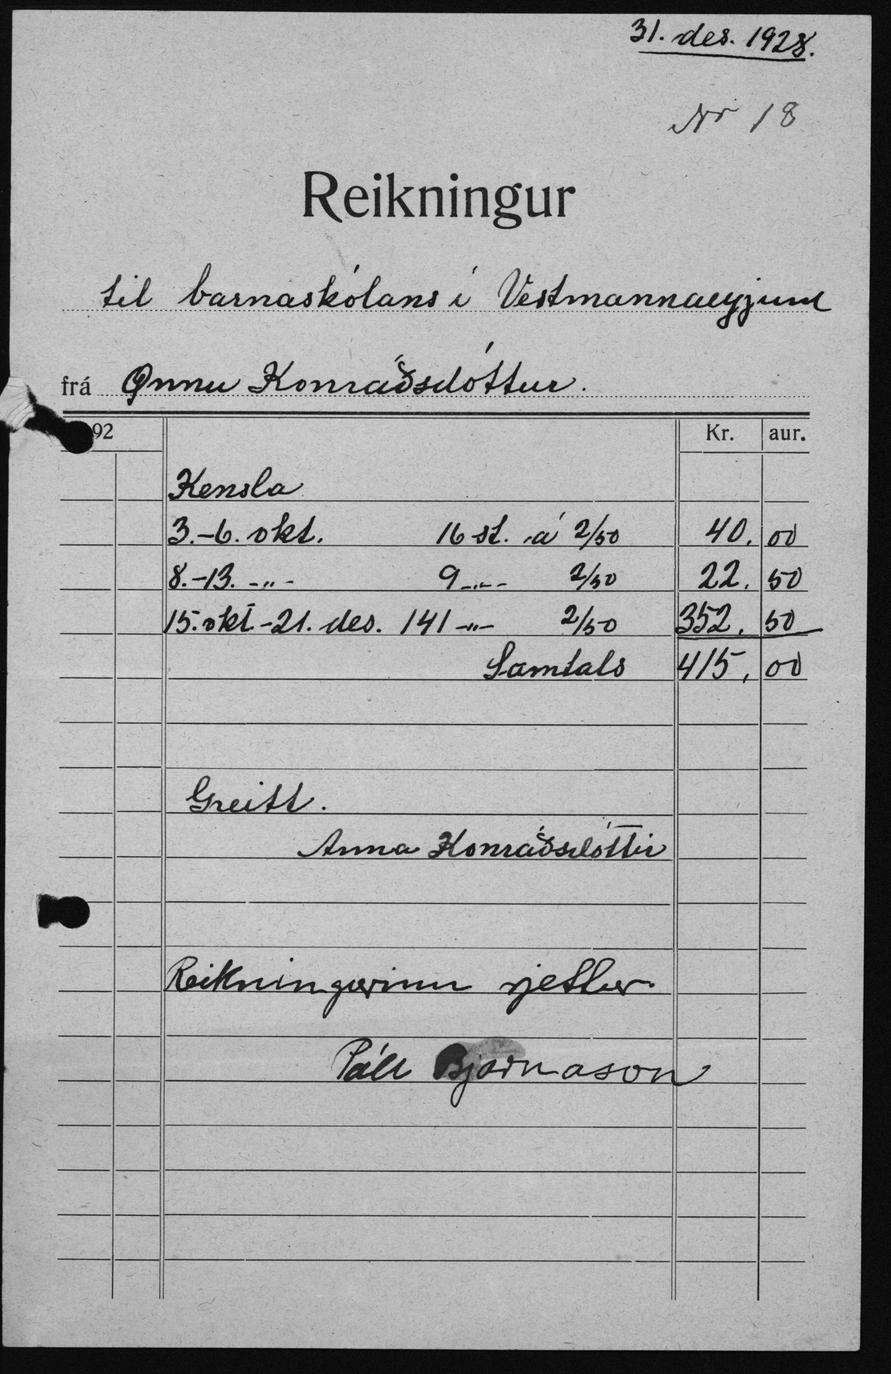 31. des. 1928.
Nr 18
Reikningur
til barnaskólans í Vestmannaeyjum
frá Önnu Konráðsdóttur.
92 Kr. aur.
Kensla
3.-6. okt. 16 st. á 2/50 40. 00
8.-13. -"- 9 -"- 2/50 22. 50
15. okt - 21. des. 141 -"- 2/50 352. 50
Samtals 415, 00
Greitt.
Anna Konráðsdóttir
Reikningurinn rjettur.
Páll Bjarnason